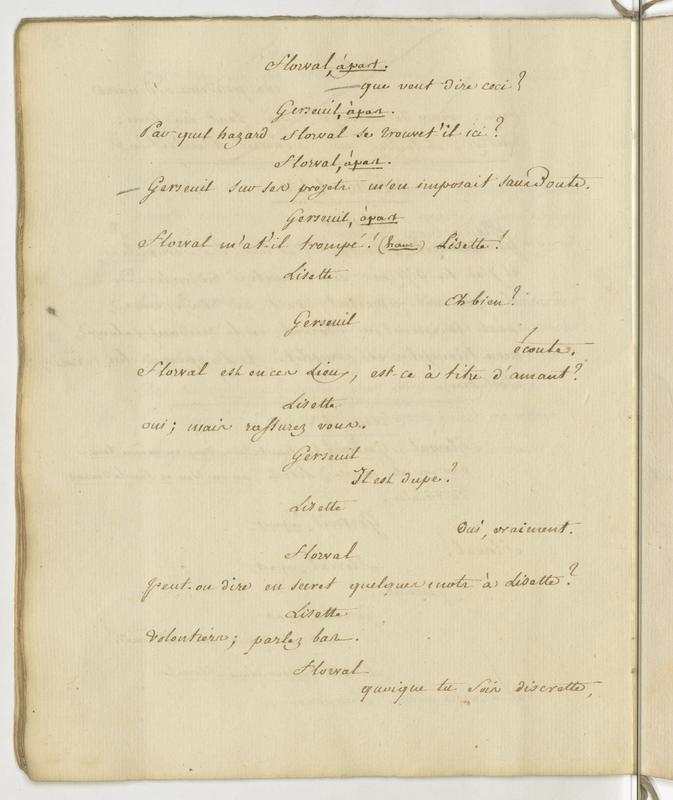 Florval, àpart.
que veut dire ceci?
Gerseuil, àpart.
Par quel hazard Florval se trouvet'il ici?
Florval, àpart.
Gerseuil sur ses projets m'en imposait sans Doute.
Gerseuil, àpart
Florval m'at-il trompé! (haut) Lisette!
Lisette
Eh bien?
Gerseuil
écoute.
Florval est en ces Lieux, est-ce à titre d'amant?
Lisette
oui; mais rassurez vous.
Gerseuil
Il est dupe?
Lisette
Oui, vraiment.
Florval
Peut-on dire en secret quelques mots à Lisette?
Lisette
Volontiers; parlez bas.
Florval
quoique tu sois discrette,